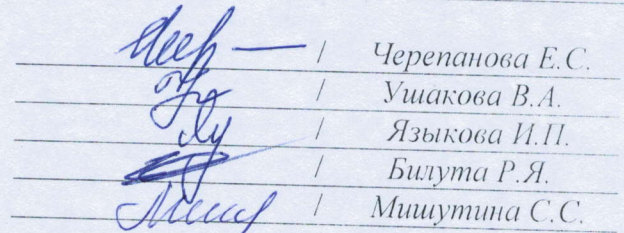 / Черепанова Е.С.
/ Ушакова В.А.
/ Языкова И.П.
/ Билута Р.Я.
/ Мишутина С.С.